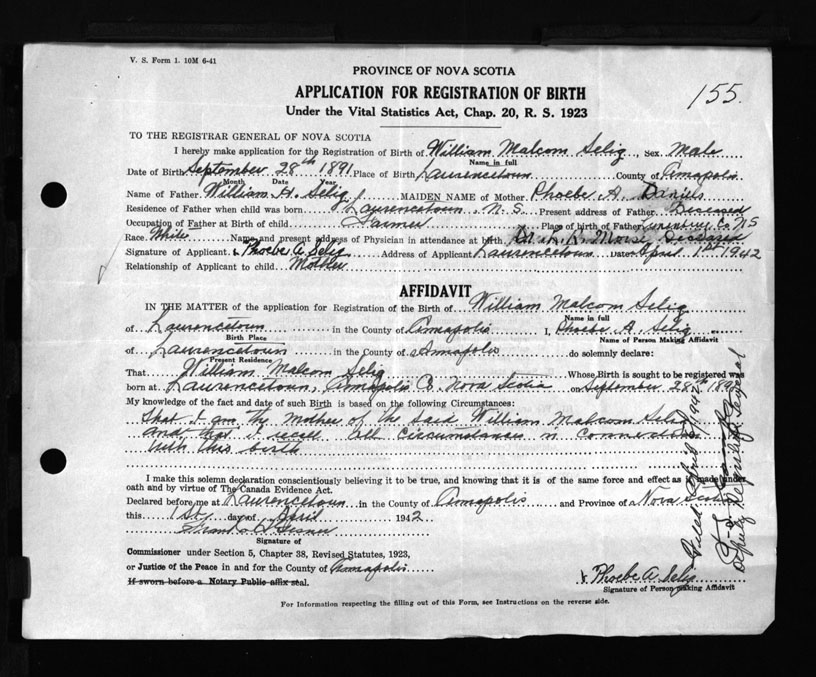 V. S. Form 1. 10M 6-41
155.
PROVINCE OF NOVA SCOTIA
APPLICATION FOR REGISTRATION OF BIRTH
Under the Vital Statistics Act, Chap. 20, R. S. 1923
TO THE REGISTRAR GENERAL OF NOVA SCOTIA
I hereby make application for the Registration of Birth of William Malcom Selig, Sex Male
Name in full
Date of Birth September 28th 1891 Place of Birth Laurencetown County of Annapolis
Month Date Year
Name of Father William H. Selig MAIDEN NAME of Mother Phoebe A. Daniels
Residence of Father when child was born Laurencetown, N.S. Present address of Father Deceased
Occupation of Father at Birth of child Farmer Place of birth of Father Lunenburg Co NS
Race White Name and present address of Physician in attendance at birth Dr. L. R. Morse Deceased
Signature of Applicant x Phoebe A Selig Address of Applicant Laurencetown Date April 1st 1942
Relationship of Applicant to child Mother
AFFIDAVIT
IN THE MATTER of the application for Registration of the Birth of William Malcom Selig
Name in full
of Laurencetown in the County of Annapolis I, Phoebe A Selig
Birth Place Name of Person Making Affidavit
of Laurencetown in the County of Annapolis do solemnly declare:
Present Residence
That William Malcom Selig Whose Birth is sought to be registered was
born at Laurencetown, Annapolis Co Nova Scotia on September 28th 1891
My knowledge of the fact and date of such Birth is based on the following Circumstances:
That I am the Mother of the said William Malcom Selig
and that I recall all circumstances in connection
with this birth
I make this solemn declaration conscientiously believing it to be true, and knowing that it is of the same force and effect as if made under
oath and by virtue of The Canada Evidence Act.
Declared before me at Laurencetown in the County of Annapolis and Province of Nova Scotia
this 1st day of April 1942
Signature of
Commissioner under Section 5, Chapter 38, Revised Statutes, 1923,
or Justice of the Peace in and for the County of Annapolis
If sworn before a Notary Public affix seal.
x Phoebe A Selig
Signature of Person making Affidavit
For Information respecting the filling out of this Form, see Instructions on the reverse side.
Deputy Registrar General